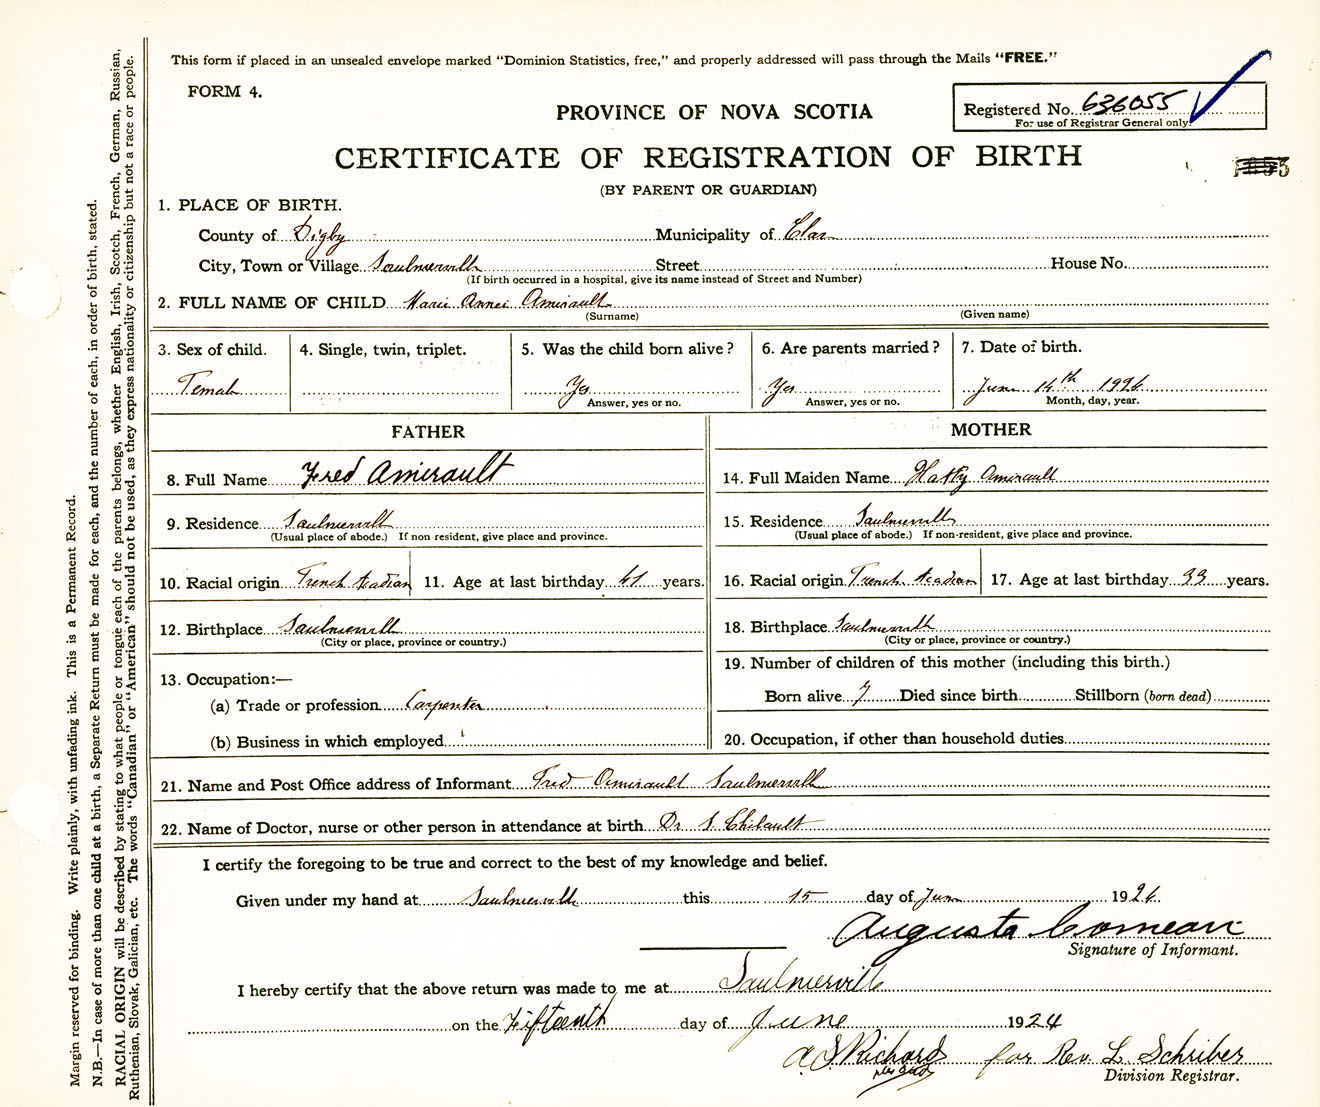 This form if placed in an unsealed envelope marked "Dominion Statistics, free," and properly addressed will pass through the Mails "FREE."
FORM 4.
Registered No. 636055
For use of Registrar General only.
PROVINCE OF NOVA SCOTIA
CERTIFICATE OF REGISTRATION OF BIRTH
(BY PARENT OR GUARDIAN)
1. PLACE OF BIRTH.
County of Digby Municipality of Clare
City, Town or Village Saulnierville Street House No.
(If birth occurred in a hospital, give its name instead of Street and Number)
2. FULL NAME OF CHILD Marie Annei Amirault
(Surname) (Given name)
3. Sex of child. 4. Single, twin, triplet. 5. Was the child born alive? 6. Are parents married? 7. Date of birth.
Female Yes Yes June 14th 1926
Answer, yes or no. Answer, yes or no. Month, day, year.
FATHER MOTHER
8. Full Name Fred Amirault 14. Full Maiden Name Hatty Amirault
9. Residence Saulnierville 15. Residence Saulnierville
(Usual place of abode.) If non-resident, give place and province. (Usual place of abode.) If non-resident, give place and province.
10. Racial origin French Acadian 11. Age at last birthday 41 years. 16. Racial origin French Acadian 17. Age at last birthday 33 years.
12. Birthplace Saulnierville 18. Birthplace Saulnierville
(City or place, province or country.) (City or place, province or country.)
13. Occupation:— 19. Number of children of this mother (including this birth.)
(a) Trade or profession Carpenter Born alive 7 Died since birth Stillborn (born dead)
(b) Business in which employed 20. Occupation, if other than household duties
21. Name and Post Office address of Informant Fred Amirault Saulnierville
22. Name of Doctor, nurse or other person in attendance at birth Dr
I certify the foregoing to be true and correct to the best of my knowledge and belief.
Given under my hand at Saulnierville this 15 day of June 1926.
Augusta Comeau
Signature of Informant.
I hereby certify that the above return was made to me at Saulnierville
on the Fifteenth day of June 1924
Richard for Rev. L. Schriber
Division Registrar.
Margin reserved for binding. Write plainly, with unfading ink. This is a Permanent Record.
N.B.—In case of more than one child at a birth, a Separate Return must be made for each, and the number of each, in order of birth, stated.
RACIAL ORIGIN will be described by stating to what people or tongue each of the parents belongs, whether English, Irish, Scotch, French, German, Russian,
Ruthenian, Slovak, Galician, etc. The words "Canadian" or "American" should not be used, as they express nationality or citizenship but not a race or people.